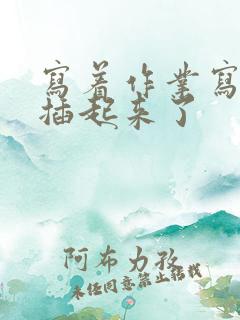 寫着作業寫
插起来了
阿布力孜
未经同意禁止转载